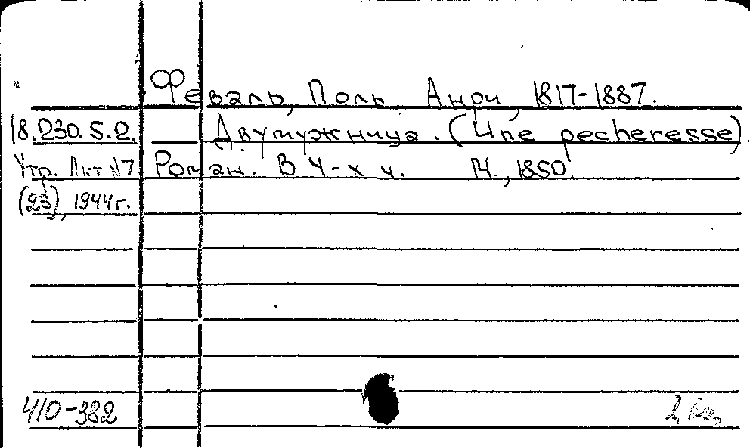 Феваль, Поль Анри, 1817-1887.
18.230.5.2. Двумужница. (Une pecheresse)
Утр. Акт №7 Роман. В 4-х ч. М., 1850
(23), 1944г.
410-382
2